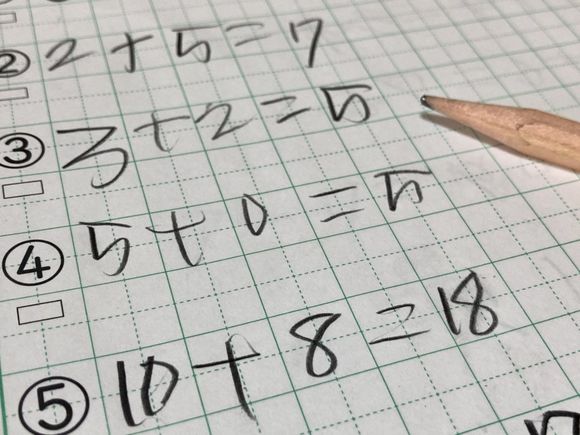 ② 2 + 5 = 7
③ 3 + 2 = 5
④ 5 + 0 = 5
⑤ 10 + 8 = 18